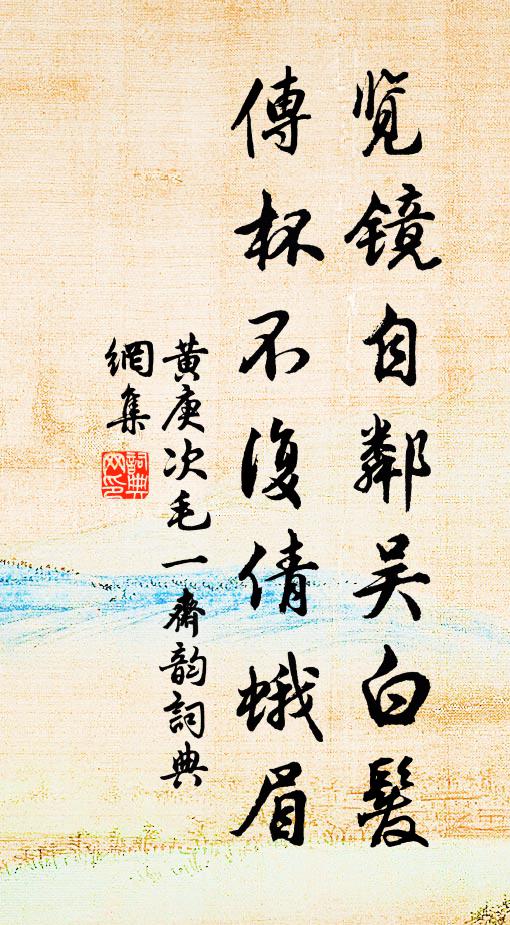 览镜自鄰吴白髮
傳杯不復倩蛾眉
黄庚次毛一齋韵詞典
網集
詞典網印